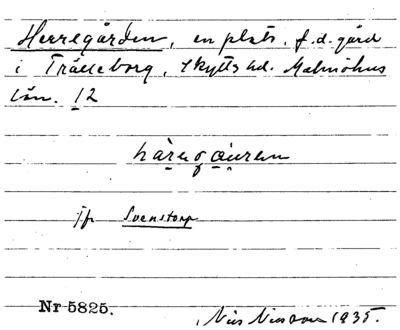 Herregården, en plats, f.d. gård
i Trälleborg, Skytts hd. Malmöhus
län. 12
jfr Svenstorp
Nr 5825.
Nils Nilsson 1935.